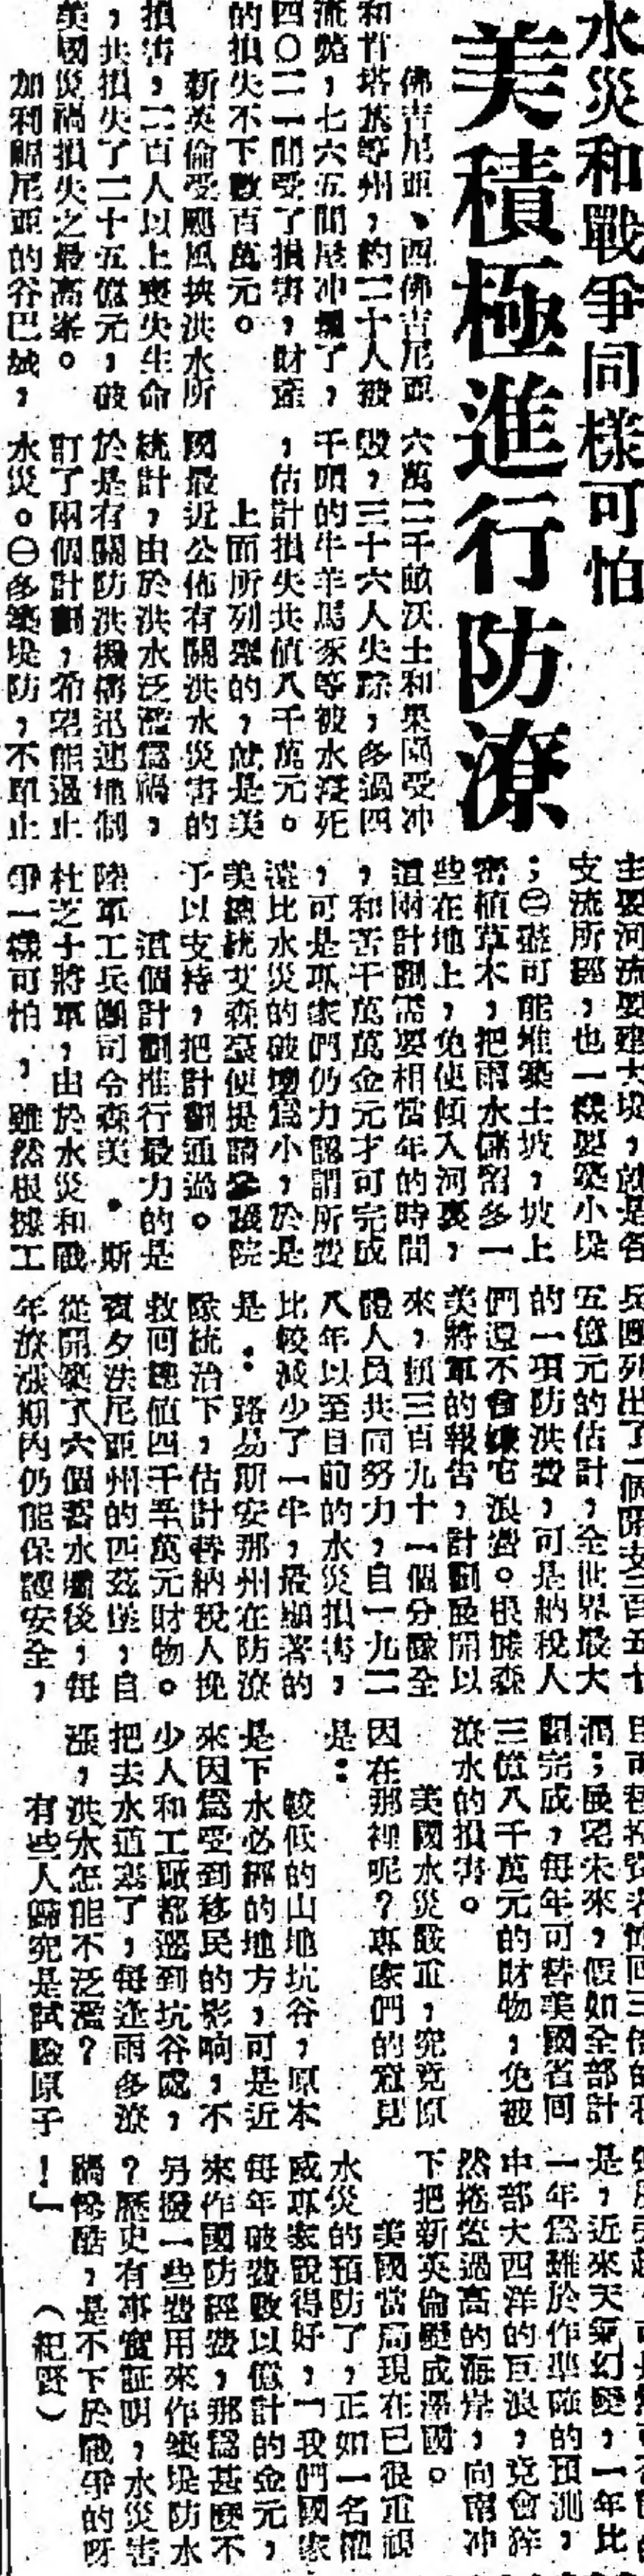 水災和戰爭同樣可怕
美積極進行防潦
佛吉尼亞、西佛吉尼亞
和肯塔基等州，約二十人被
流斃，七六五間屋冲塌了，
四〇二一間受了損害，財產
的損失不下數百萬元。
新英倫受颶風挾洪水所
損害，二百人以上喪失生命
，共損失了二十五億元，破
美國災禍損失之最高峯。
加利福尼亞的谷巴城，
六萬二千畝沃土和果園受冲
毀，三十六人失踪，多過四
千頭的牛羊馬豕等被水淹死
，估計損失共值八千萬元。
上面所列舉的，就是美
國最近公佈有關洪水災害的
統計，由於洪水泛濫爲禍，
於是有關防洪機構迅速地制
訂了兩個計劃，希望能遏止
水災。㊀多築堤防，不單止
主要河流要建大堤，就是各
支流所經，也一樣要築小堤
；㊁儘可能堆築土坡，坡上
密植草木，把雨水儲留多一
些在地上，免使傾入河裏，
這兩計劃需要相當年的時間
，和若干萬萬金元才可完成
，可是專家們仍力認謂所費
遠比水災的破壞爲小，於是
美總統艾森豪便提請參議院
予以支持，把計劃通過。
這個計劃推行最力的是
陸軍工兵團司令森美．斯
杜芝士將軍，由於水災和戰
爭一樣可怕，雖然根據工
兵團列出了一個開支三百五十
五億元的估計，全世界最大
的一項防洪費，可是納稅人
們還不會嫌它浪費。根據森
美將軍的報告，計劃展開以
來，頼三百九十一個分隊全
體人員共同努力，自一九二
八年以至目前的水災損害，
比較減少了一半，最顯著的
是：路易斯安那州在防潦
除統治下，估計替納稅人挽
救回總值四千五萬元財物。
賓夕法尼亞州的匹茲堡，自
從開築了六個蓄水壩後，每
年潦漲期內仍能保護安全，
潤；展望未來，假如全部計
劃完成，每年可替美國省回
三億八千萬元的財物，免被
潦水的損害。
美國水災嚴重，究竟原
因在那裡呢？專家們的意見
是：
較低的山地坑谷，原本
是下水必經的地方，可是近
來因爲受到移民的影响，不
少人和工廠都遷到坑谷處，
把去水道塞了，每逢雨多潦
漲，洪水怎能不泛濫？
有些人歸究是試驗原子
是，近來天氣幻變，一年比
一年爲難於作準確的預測，
中部大西洋的巨浪，竟會猝
然捲盜過高的海岸，向南冲
下把新英倫變成澤國。
美國當局現在已很重視
水災的預防了，正如一名權
威專家說得好，「我們國家
每年破費數以億計的金元，
來作國防經費，那爲甚麼不
另撥一些費用來作築堤防水
？歷史有事實証明，水災害
禍慘酷，是不下於戰爭的呀
！」　　（紀賢）